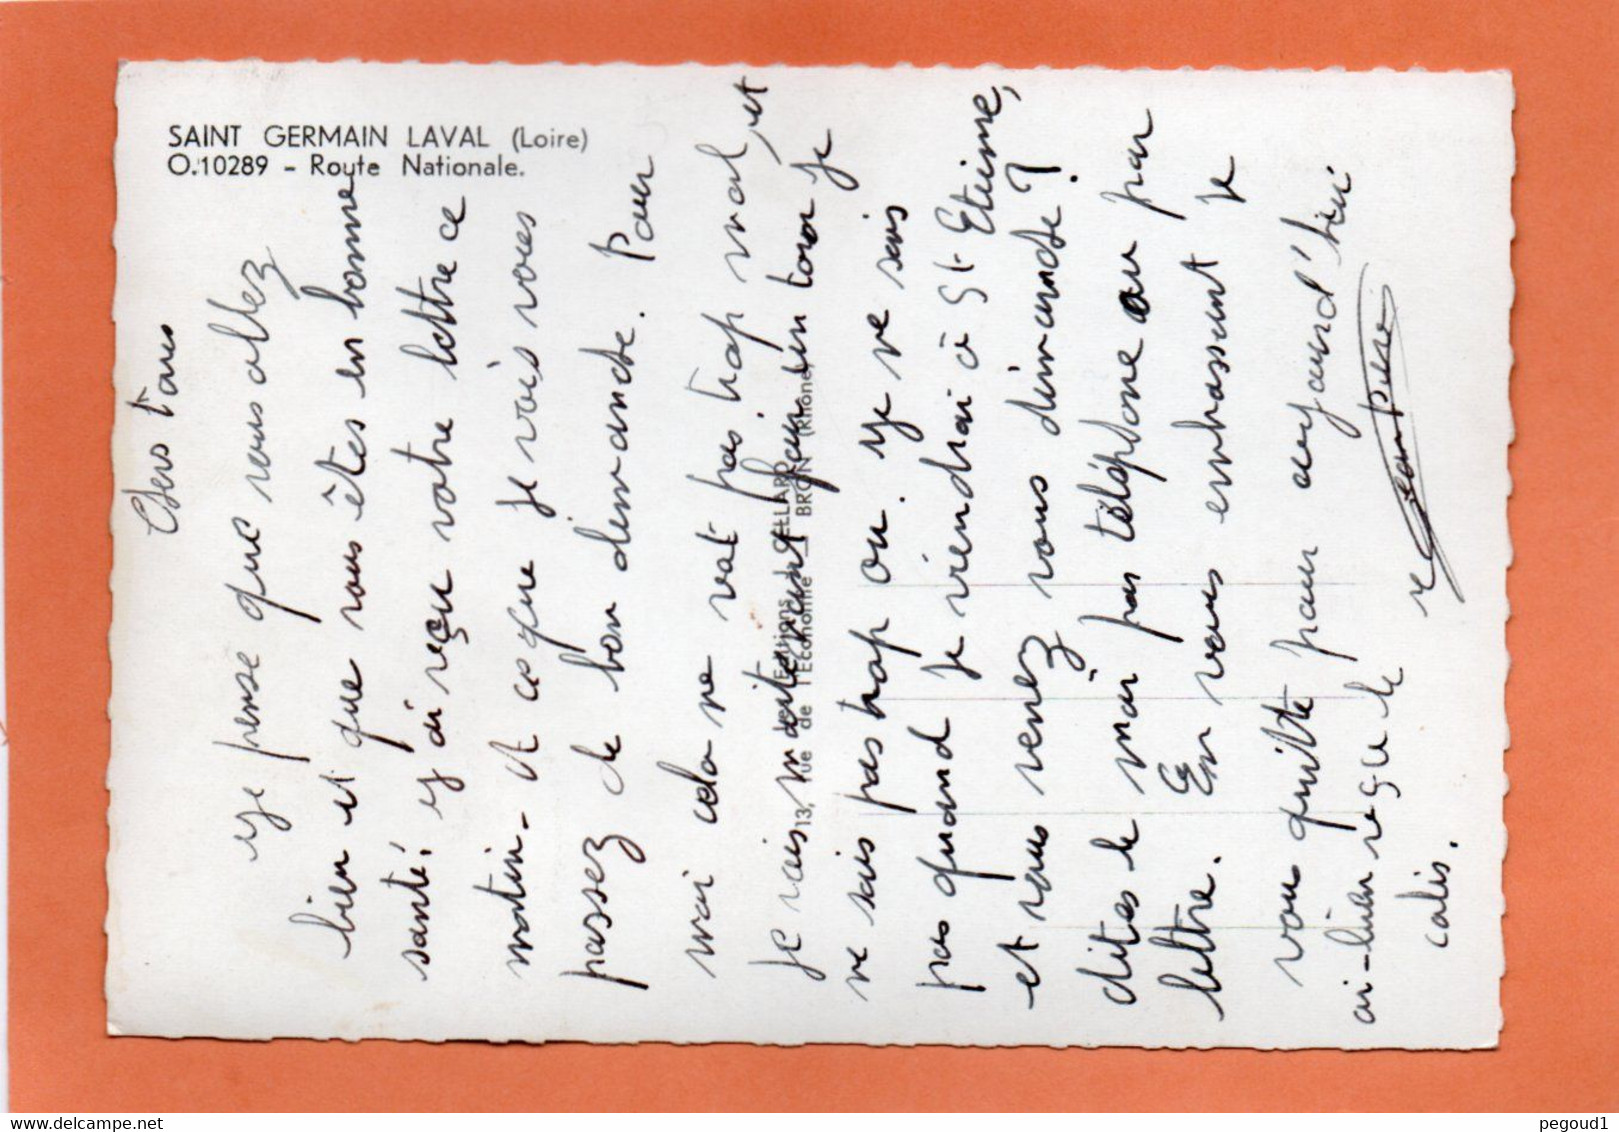 SAINT GERMAIN LAVAL (Loire)
O.10289 - Route Nationale.
Editions CELLARD
13, rue de l'Economie _ BRON (Rhône)
Chers tous
Je pense que vous allez
bien et que vous êtes en bonne
santé. J'ai reçu votre lettre ce
matin. Et ce que je vois vous
passez de bon dimanche. Pour
moi cela ne vat pas trop mal, et
je vais maintenant faire un tour je
ne sais pas trop ou. Je ne sais
pas quand je viendrai à St Etienne,
et vous venez vous dimanche ?
dites le moi par téléphone ou par
lettre. En vous embrassant je
vous quitte pour aujourd'hui
ai-bien reçu le
colis.
Jean Pierre
pegoud1